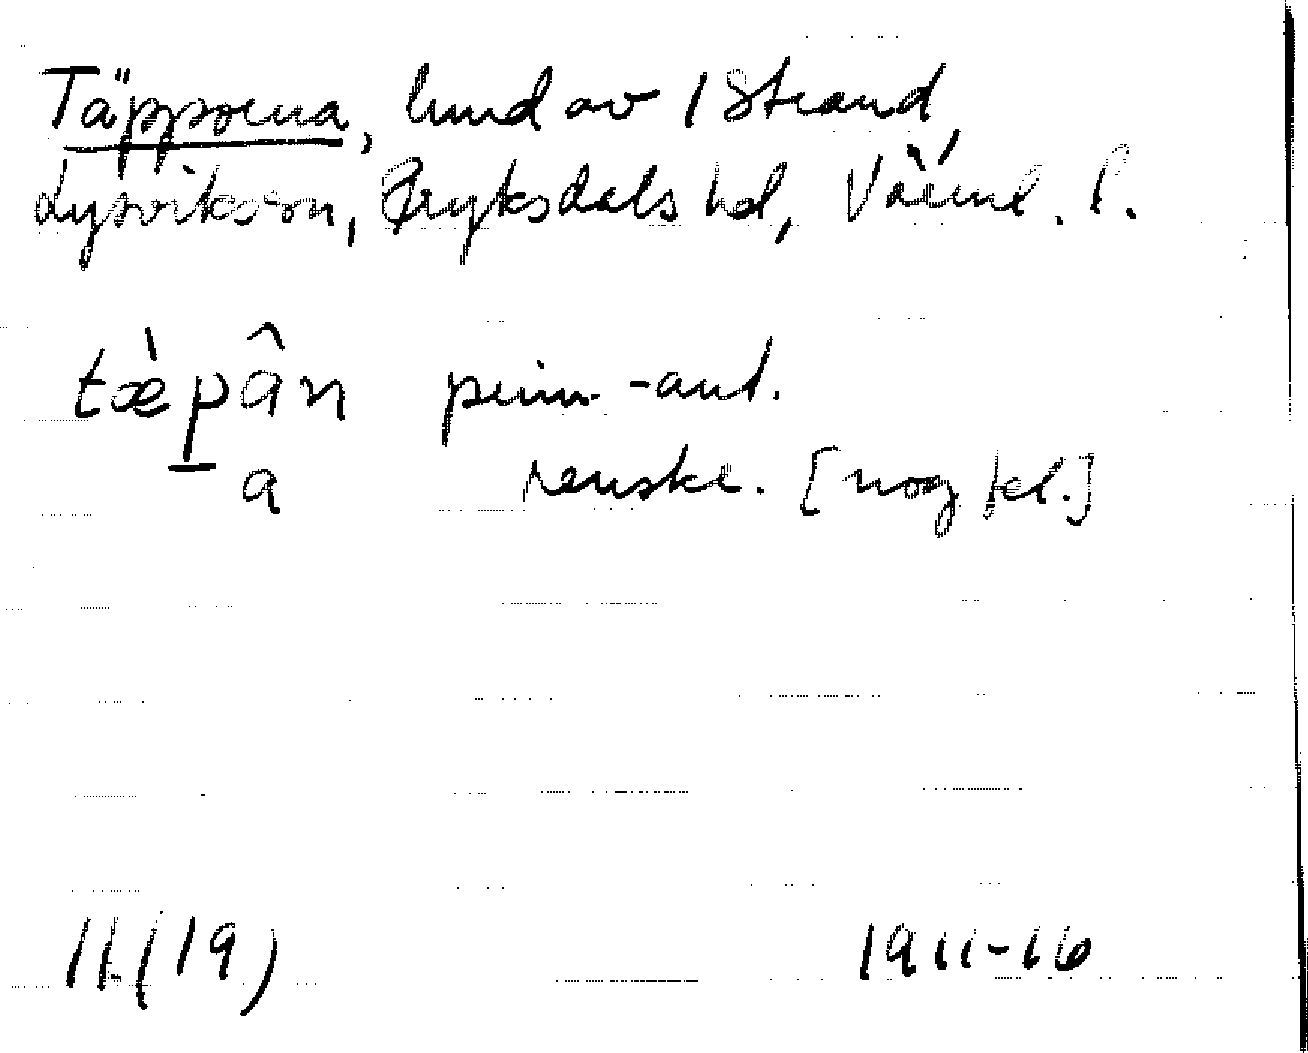 Täpporna, hmd av 1 Strand,
Lysviks sn, Fryksdals hd, Värml. l.
tæ̀pân prim.-ant.
a renskr. [nog kl.]
11 (19) 1911-16